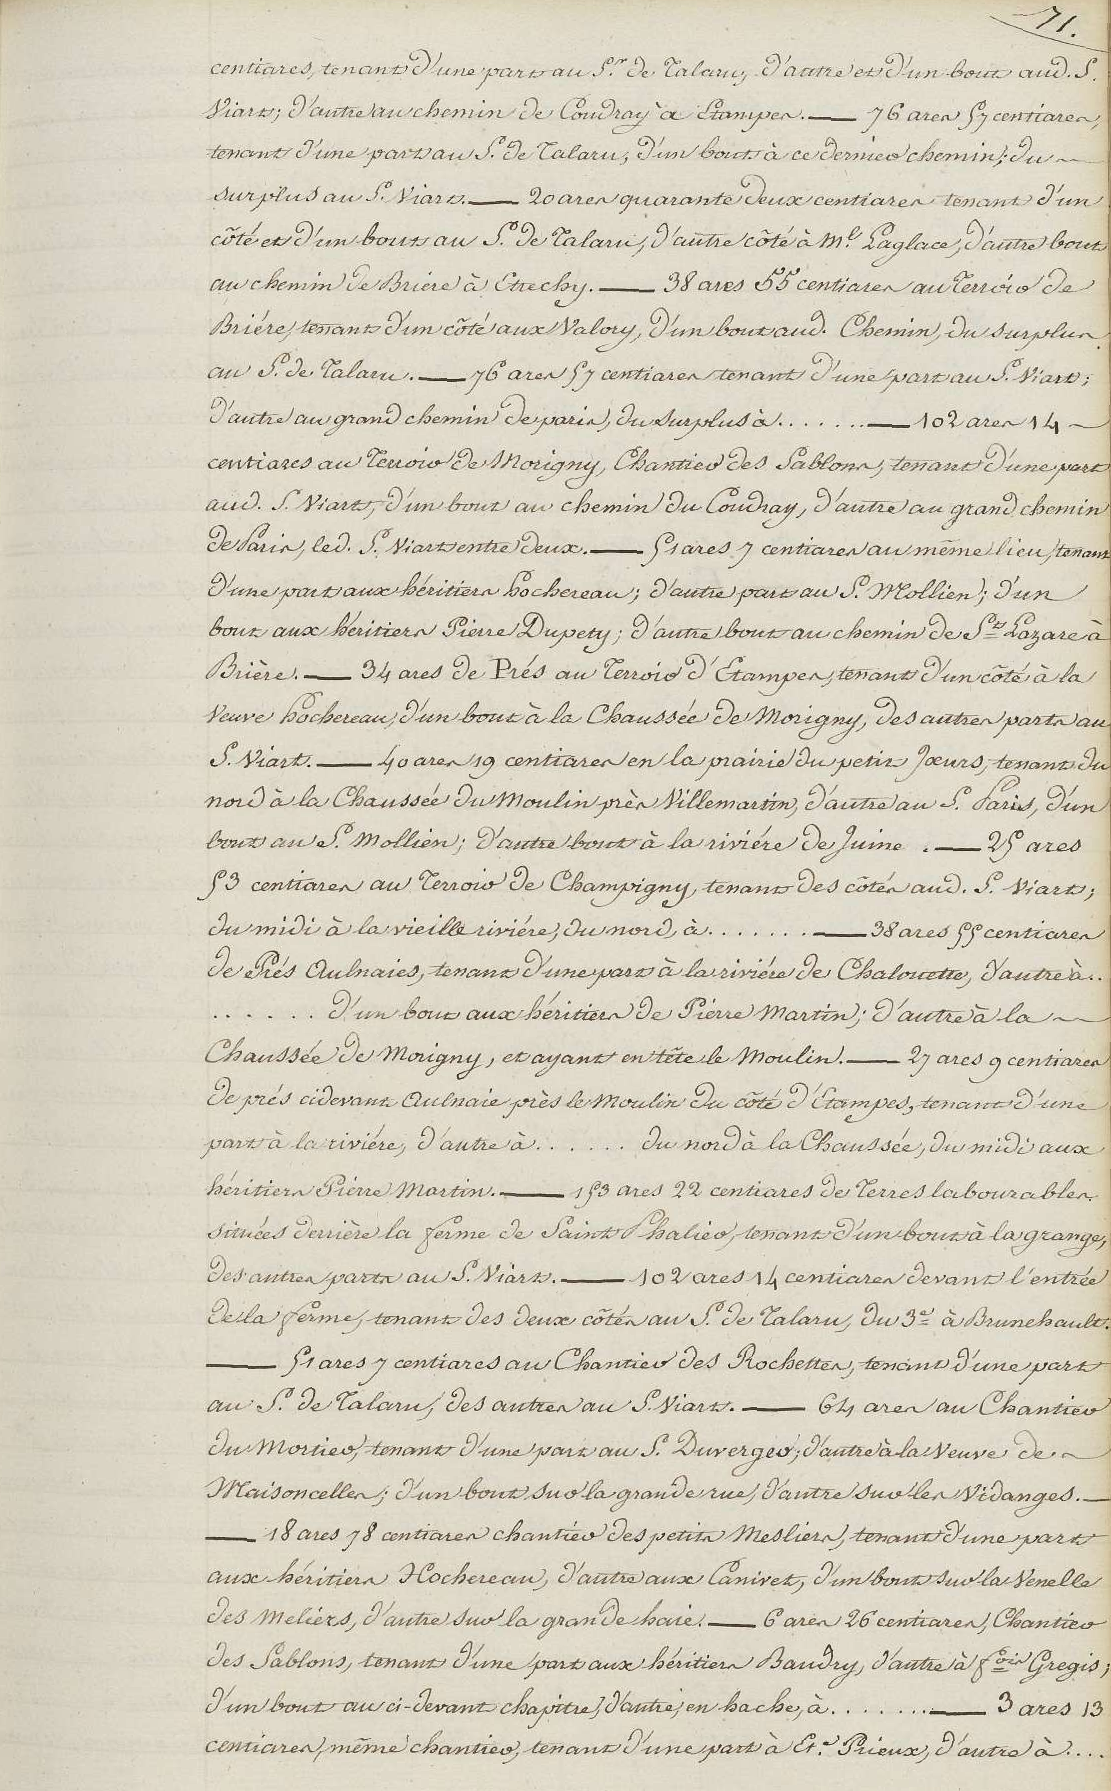 71.
centiares, tenant d'une part au S.r de Talaru, d'autre et d'un bout aud. S.
Viart; d'autre au chemin de Coudray à Etampes. — 76 ares 57 centiares,
tenant d'une part au S. de Talaru, d'un bout à ce dernier chemin; du
surplus au S. Viart. — 20 ares quarante deux centiares tenant d'un
côté et d'un bout au S. de Talaru, d'autre côté à M.e Laglace, d'autre bout
au chemin de Briere à Etrechy. — 38 ares 55 centiares au Terroir de
Briére, tenant d'un côté aux Valory, d'un bout aud. Chemin, du surplus
au S. de Talaru. — 76 ares 57 centiares tenant d'une part au S. Viart;
d'autre au grand chemin de paris, du surplus à ....... — 102 ares 14
centiares au Terroir de Morigny, Chantier des Sablons, tenant d'une part
aud. S. Viart, d'un bout au chemin du Coudray, d'autre au grand chemin
de Paris, led. S. Viart entre deux. — 51 ares 7 centiares au même lieu, tenant
d'une part aux héritiers hochereau; d'autre part au S. Mollien; d'un
bout aux héritiers Pierre Dupety; d'autre bout au chemin de St Lazare à
Brière. — 34 ares de Prés au Terroir d'Etampes, tenant d'un côté à la
Veuve hochereau, d'un bout à la Chaussée de Morigny, des autres parts au
S. Viart. — 40 ares 19 centiares en la prairie du petit Jœurs, tenant du
nord à la Chaussée du Moulin près Villemartin, d'autre au S. Paris, d'un
bout au S. Mollien; d'autre bout à la riviére de Juine . — 25 ares
53 centiares au Terroir de Champigny, tenant des côtés aud. S. Viart;
du midi à la vieille riviére, du nord, à ....... — 38 ares 55 centiares
de Prés Aulnaies, tenant d'une part à la riviére de Chalouette, d'autre à ..
...... d'un bout aux héritiers de Pierre Martin; d'autre à la
Chaussée de Morigny, et ayant en tête le Moulin. — 27 ares 9 centiares
de prés cidevant Aulnaie près le Moulin du côté d'Etampes, tenant d'une
part à la riviére, d'autre à ...... du nord à la Chaussée, du midi aux
héritiers Pierre Martin. — 153 ares 22 centiares de Terres labourables
situées derrière la ferme de Saint Phalier, tenant d'un bout à la grange,
des autres parts au S. Viart. — 102 ares 14 centiares devant l'entrée
de la ferme, tenant des deux côtés au S. de Talaru, du 3e à Brunehault.
— 51 ares 7 centiares au Chantier des Rochettes, tenant d'une part
au S. de Talaru, des autres au S. Viart. — 64 ares au Chantier
du Mortier, tenant d'une part au S. Duverger, d'autre à la Veuve de
Maisoncelles; d'un bout sur la grande rue, d'autre sur les Vidanges. —
— 18 ares 78 centiares chantier des petits Mesliers, tenant d'une part
aux héritiers Hochereau, d'autre aux Canivet, d'un bout sur la Venelle
des Meliers, d'autre sur la grande haie. — 6 ares 26 centiares, Chantier
des Sablons, tenant d'une part aux héritiers Baudry, d'autre à fois Gregis;
d'un bout au ci-devant chapitre, d'autre, en hache, à ....... — 3 ares 13
centiares, même chantier, tenant d'une part à Et.e Prieux, d'autre à ....